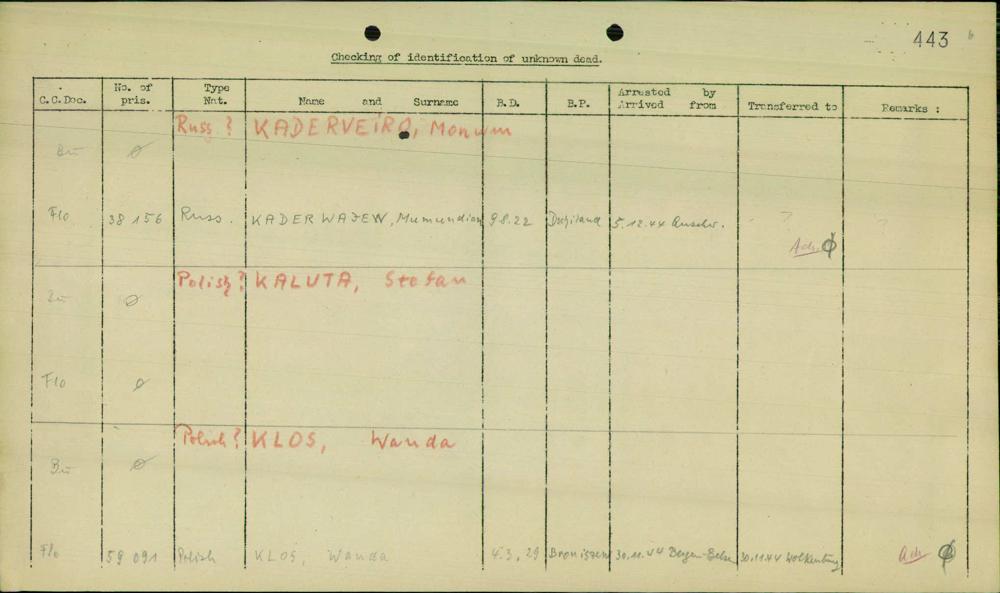 443
Checking of identification of unknown dead.
C.C.Doc. No. of pris. Type Nat. Name and Surname B.D. B.P. Arrested by Arrived from Transferred to Remarks :
Russ ? KADERVEIRO, Monwm
Bu Ø
Flo 38 156 Russ. KADERWAJEW, Mumundian 9.8.22 5.12.44 Auschw. ?
Ø
Polish ? KALUTA, Stefan
Bu Ø
Flo Ø
Polish ? KLOS, Wanda
Bu Ø
Flo 59 091 Polish KLOS, Wanda 4.3.29 Broniszew 30.11.44 Bergen-Belse 30.11.44 Wolkenburg Ø